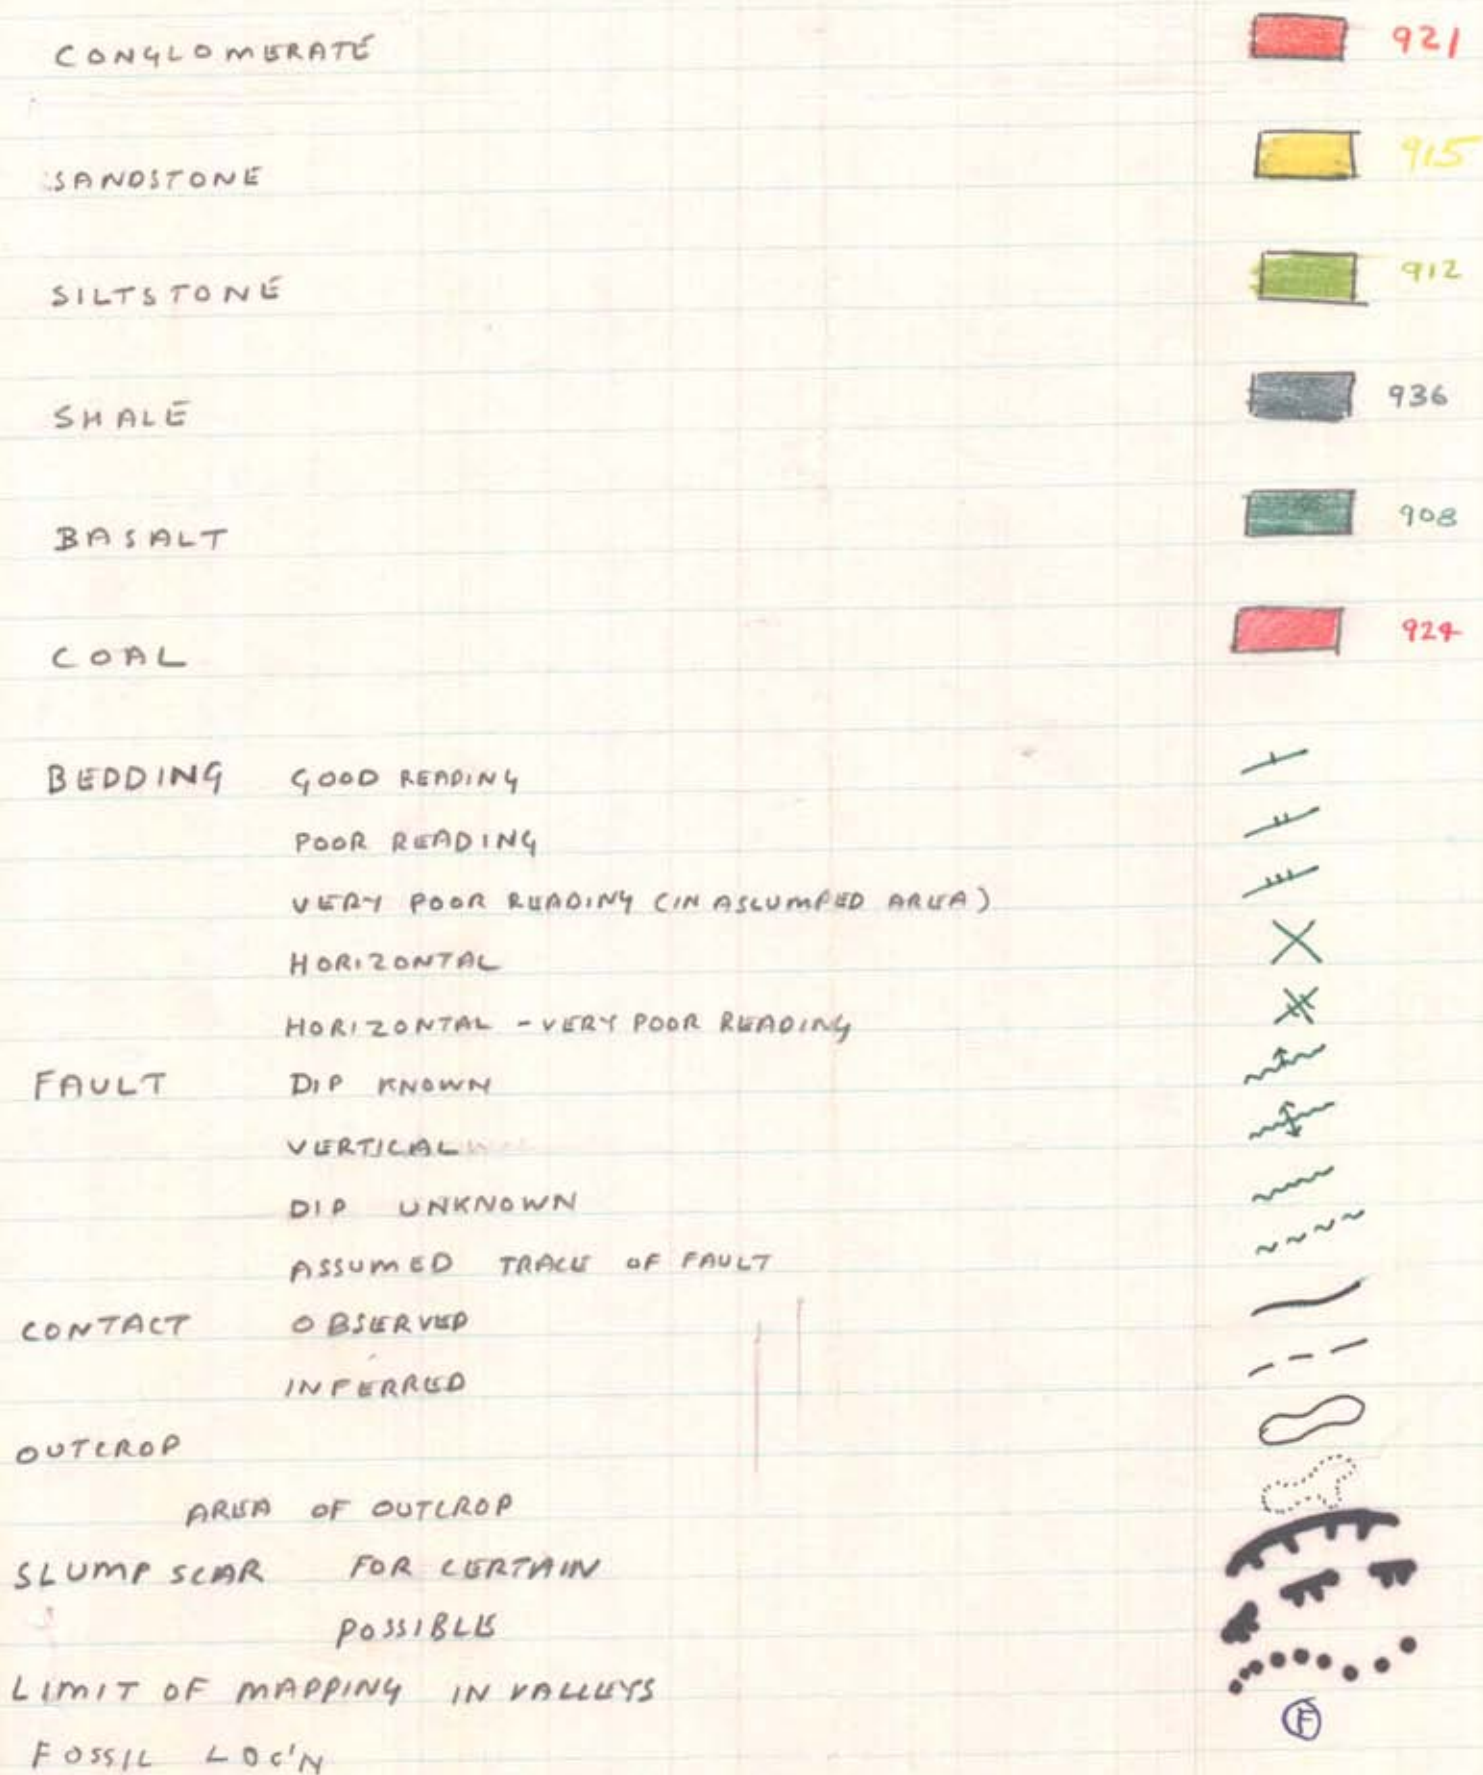 CONGLOMERATE 921
SANDSTONE 915
SILTSTONE 912
SHALE 936
BASALT 908
COAL 924
BEDDING GOOD READING
POOR READING
VERY POOR READING (IN A SLUMPED AREA)
HORIZONTAL
HORIZONTAL - VERY POOR READING
FAULT DIP KNOWN
VERTICAL
DIP UNKNOWN
ASSUMED TRACE OF FAULT
CONTACT OBSERVED
INFERRED
OUTCROP
AREA OF OUTCROP
SLUMP SCAR FOR CERTAIN
POSSIBLE
LIMIT OF MAPPING IN VALLEYS
F
FOSSIL LOC'N